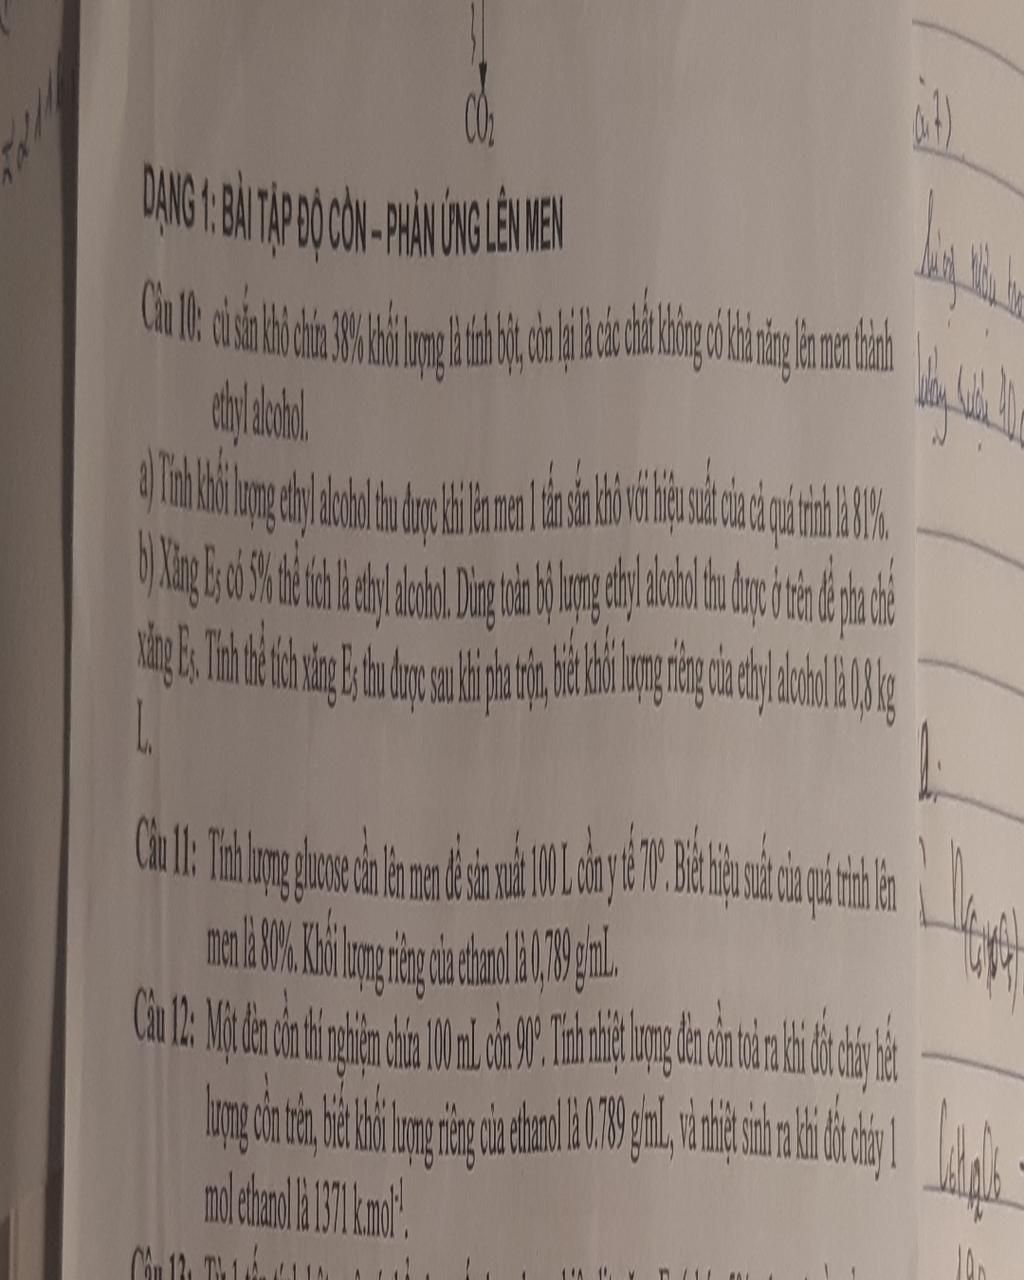 CO₂
DẠNG 1: BÀI TẬP ĐỘ CỒN – PHẢN ỨNG LÊN MEN
Câu 10: củ sắn khô chứa 38% khối lượng là tính bột, còn lại là các chất không có khả năng lên men thành
ethyl alcohol.
a) Tính khối lượng ethyl alcohol thu được khi lên men 1 tấn sắn khô với hiệu suất của cả quá trình là 81%.
b) Xăng E₅ có 5% thể tích là ethyl alcohol. Dùng toàn bộ lượng ethyl alcohol thu được ở trên để pha chế
xăng E₅. Tính thể tích xăng E₅ thu được sau khi pha trộn, biết khối lượng riêng của ethyl alcohol là 0,8 kg
L.
Câu 11: Tính lượng glucose cần lên men để sản xuất 100 L cồn y tế 70°. Biết hiệu suất của quá trình lên
men là 80%. Khối lượng riêng của ethanol là 0,789 g/mL.
Câu 12: Một đèn cồn thí nghiệm chứa 100 mL cồn 90°. Tính nhiệt lượng đèn cồn toả ra khi đốt cháy hết
lượng cồn trên, biết khối lượng riêng của ethanol là 0.789 g/mL, và nhiệt sinh ra khi đốt cháy 1
mol ethanol là 1371 k.mol⁻¹.
Câu 13:
C₆H₁₂O₆